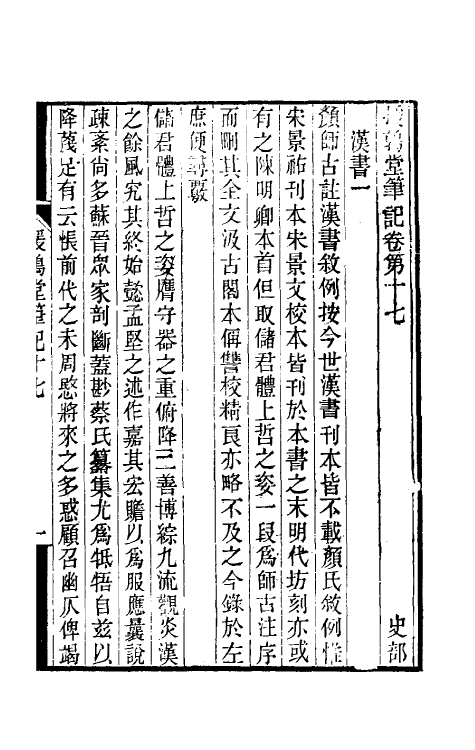 援鶉堂筆記卷第十七
史部
漢書一
顏師古註漢書敘例按今世漢書刊本皆不載顏氏敘例惟
宋景祐刊本宋景文校本皆刊於本書之末明代坊刻亦或
有之陳明卿本首但取儲君體上哲之姿一段爲師古注序
而刪其全文汲古閣本偁讐校精良亦略不及之今錄於左
庶便尋覈
儲君體上哲之姿膺守器之重俯降三善博綜九流觀炎漢
之餘風究其終始懿孟堅之述作嘉其宏贍以爲服應曩說
疎紊尙多蘇晉眾家剖斷蓋尠蔡氏纂集尤爲牴牾自茲以
降蔑足有云悵前代之未周愍將來之多惑顧召幽仄俾竭
援鶉堂筆記十七
一